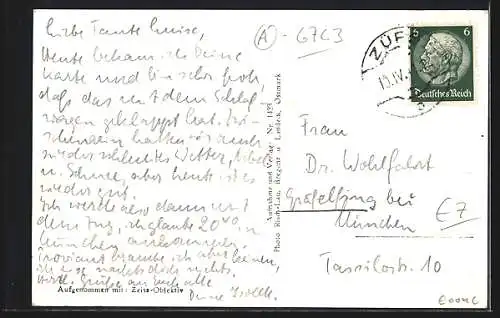 Liebe Tante Luise,
Heute bekam ich Deine
Karte und bin sehr froh,
daß das mit dem Schlaf
wagen geklappt hat. In-
zwischen hatten wir auch
wieder schlechtes Wetter, Nebel
u. Schnee, aber heut ist es
wieder gut.
Ich werde also dann mit
dem Zug, ich glaube 20⁴⁰ in
München ankommen.
Proviant brauche ich aber keinen,
nachts doch nichts.
Herzl. Grüße an euch alle
Deine
Aufgenommen mit: Zeiss-Objektiv
A - 67C3
Aufnahme und Verlag: Nr. 1433
Photo Risch-Lau, Bregenz u. Lindau, Ostmark
ZÜR
10.IV.
6 6
Deutsches Reich
Frau
Dr. Wohlfahrt
Gräfelfing bei
München
Tassilostr. 10
E7